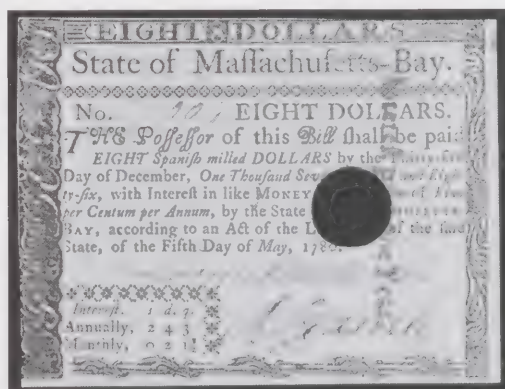 EIGHT DOLLARS
State of Maſſachuſetts-Bay.
No. EIGHT DOLLARS.
THE Poſſeſſor of this Bill ſhall be paid
EIGHT Spaniſh milled DOLLARS by the
Day of December, One Thouſand and Eigh-
ty-ſix, with Intereſt in like MONEY of Five
per Centum per Annum, by the State
BAY, according to an Act of the of the ſaid
State, of the Fifth Day of May, 1780.
Intereſt. s d. q.
Annually, 2 4 3
Monthly, 0 2 1½